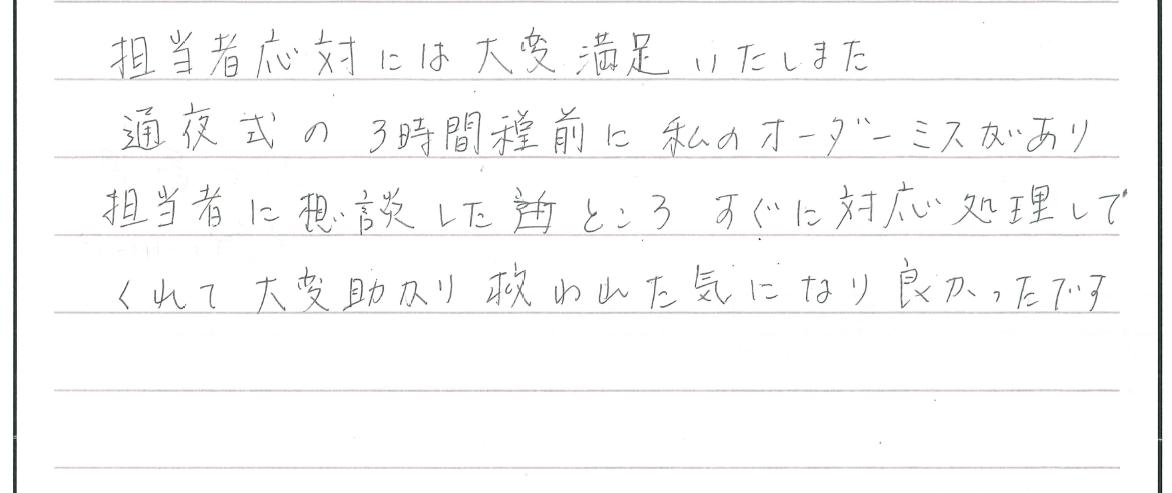 担当者応対には大変満足いたしまた
通夜式の3時間程前に私のオーダーミスがあり
担当者に想談したところすぐに対応処理して
くれて大変助かり救われた気になり良かったです